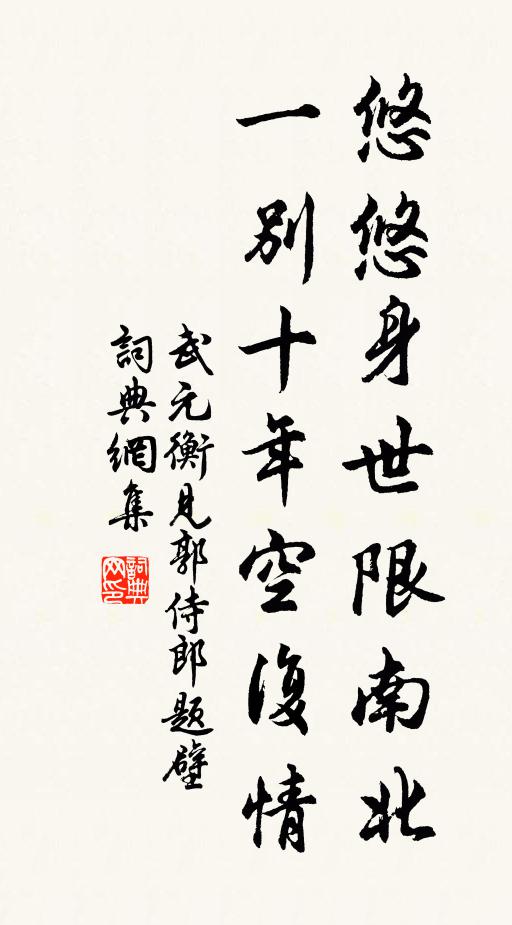 悠悠身世限南北
一別十年空復情
武元衡見郭侍郎題壁
詞典網集
詞典網印